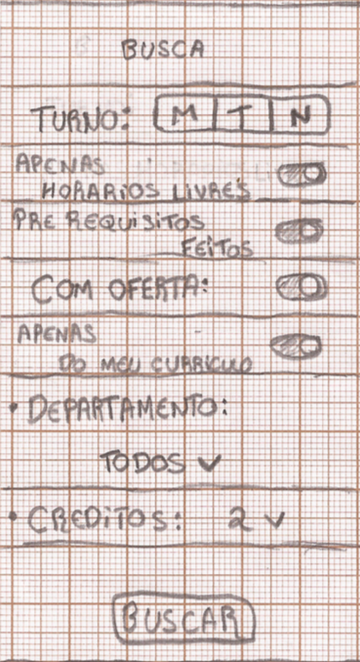 BUSCA
TURNO: M T N
APENAS
HORARIOS LIVRES
PRE REQUISITOS
FEITOS
COM OFERTA:
APENAS
DO MEU CURRICULO
• DEPARTAMENTO:
TODOS
• CREDITOS: 2
BUSCAR